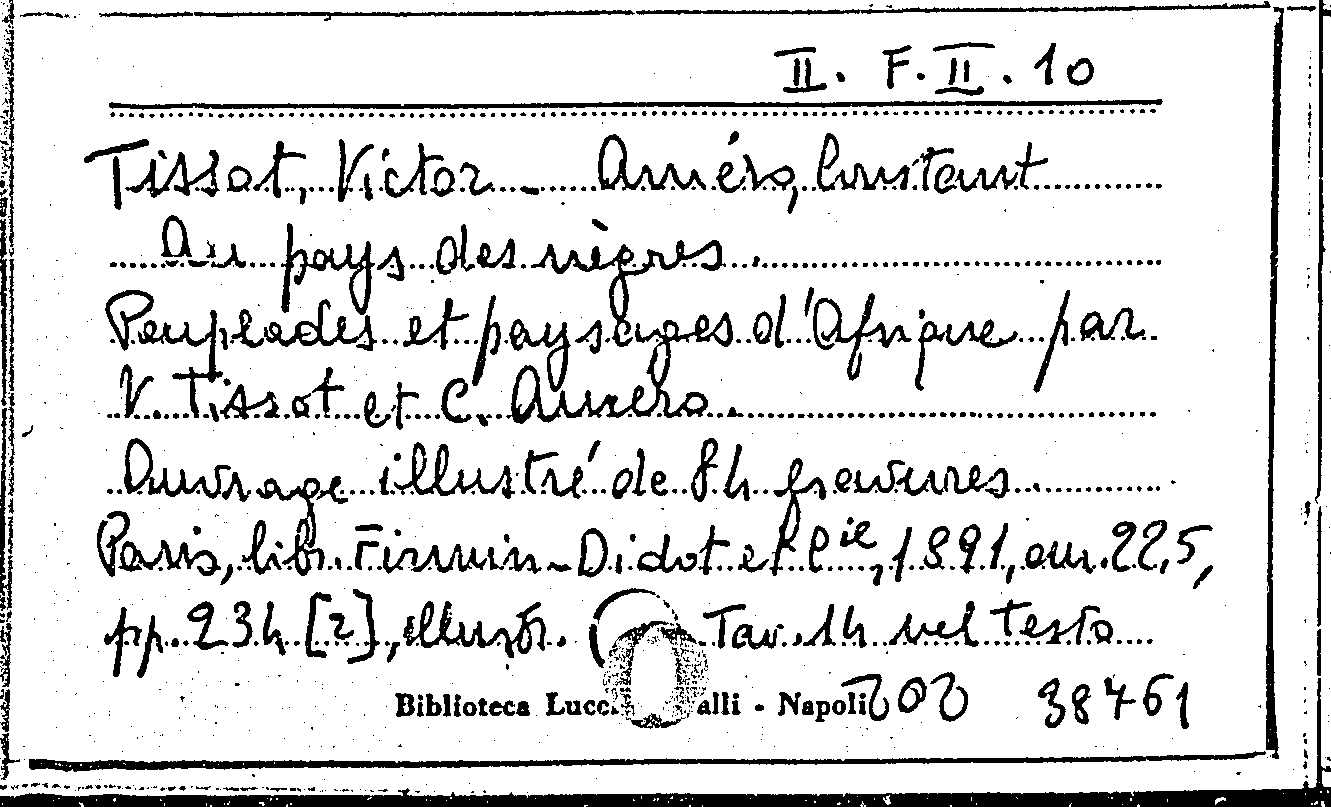 II. F. II. 10
Tissot, Victor - Améro, Constant
Au pays des nègres.
Peuplades et paysages d'Afrique par
V. Tissot et C. Améro.
Ouvrage illustré de 84 gravures.
Paris, libr. Firmin-Didot et Cie, 1891, cm. 22,5,
pp. 234 [2], illustr. Tav. 14 nel testo
Biblioteca Lucc alli - Napoli 38461